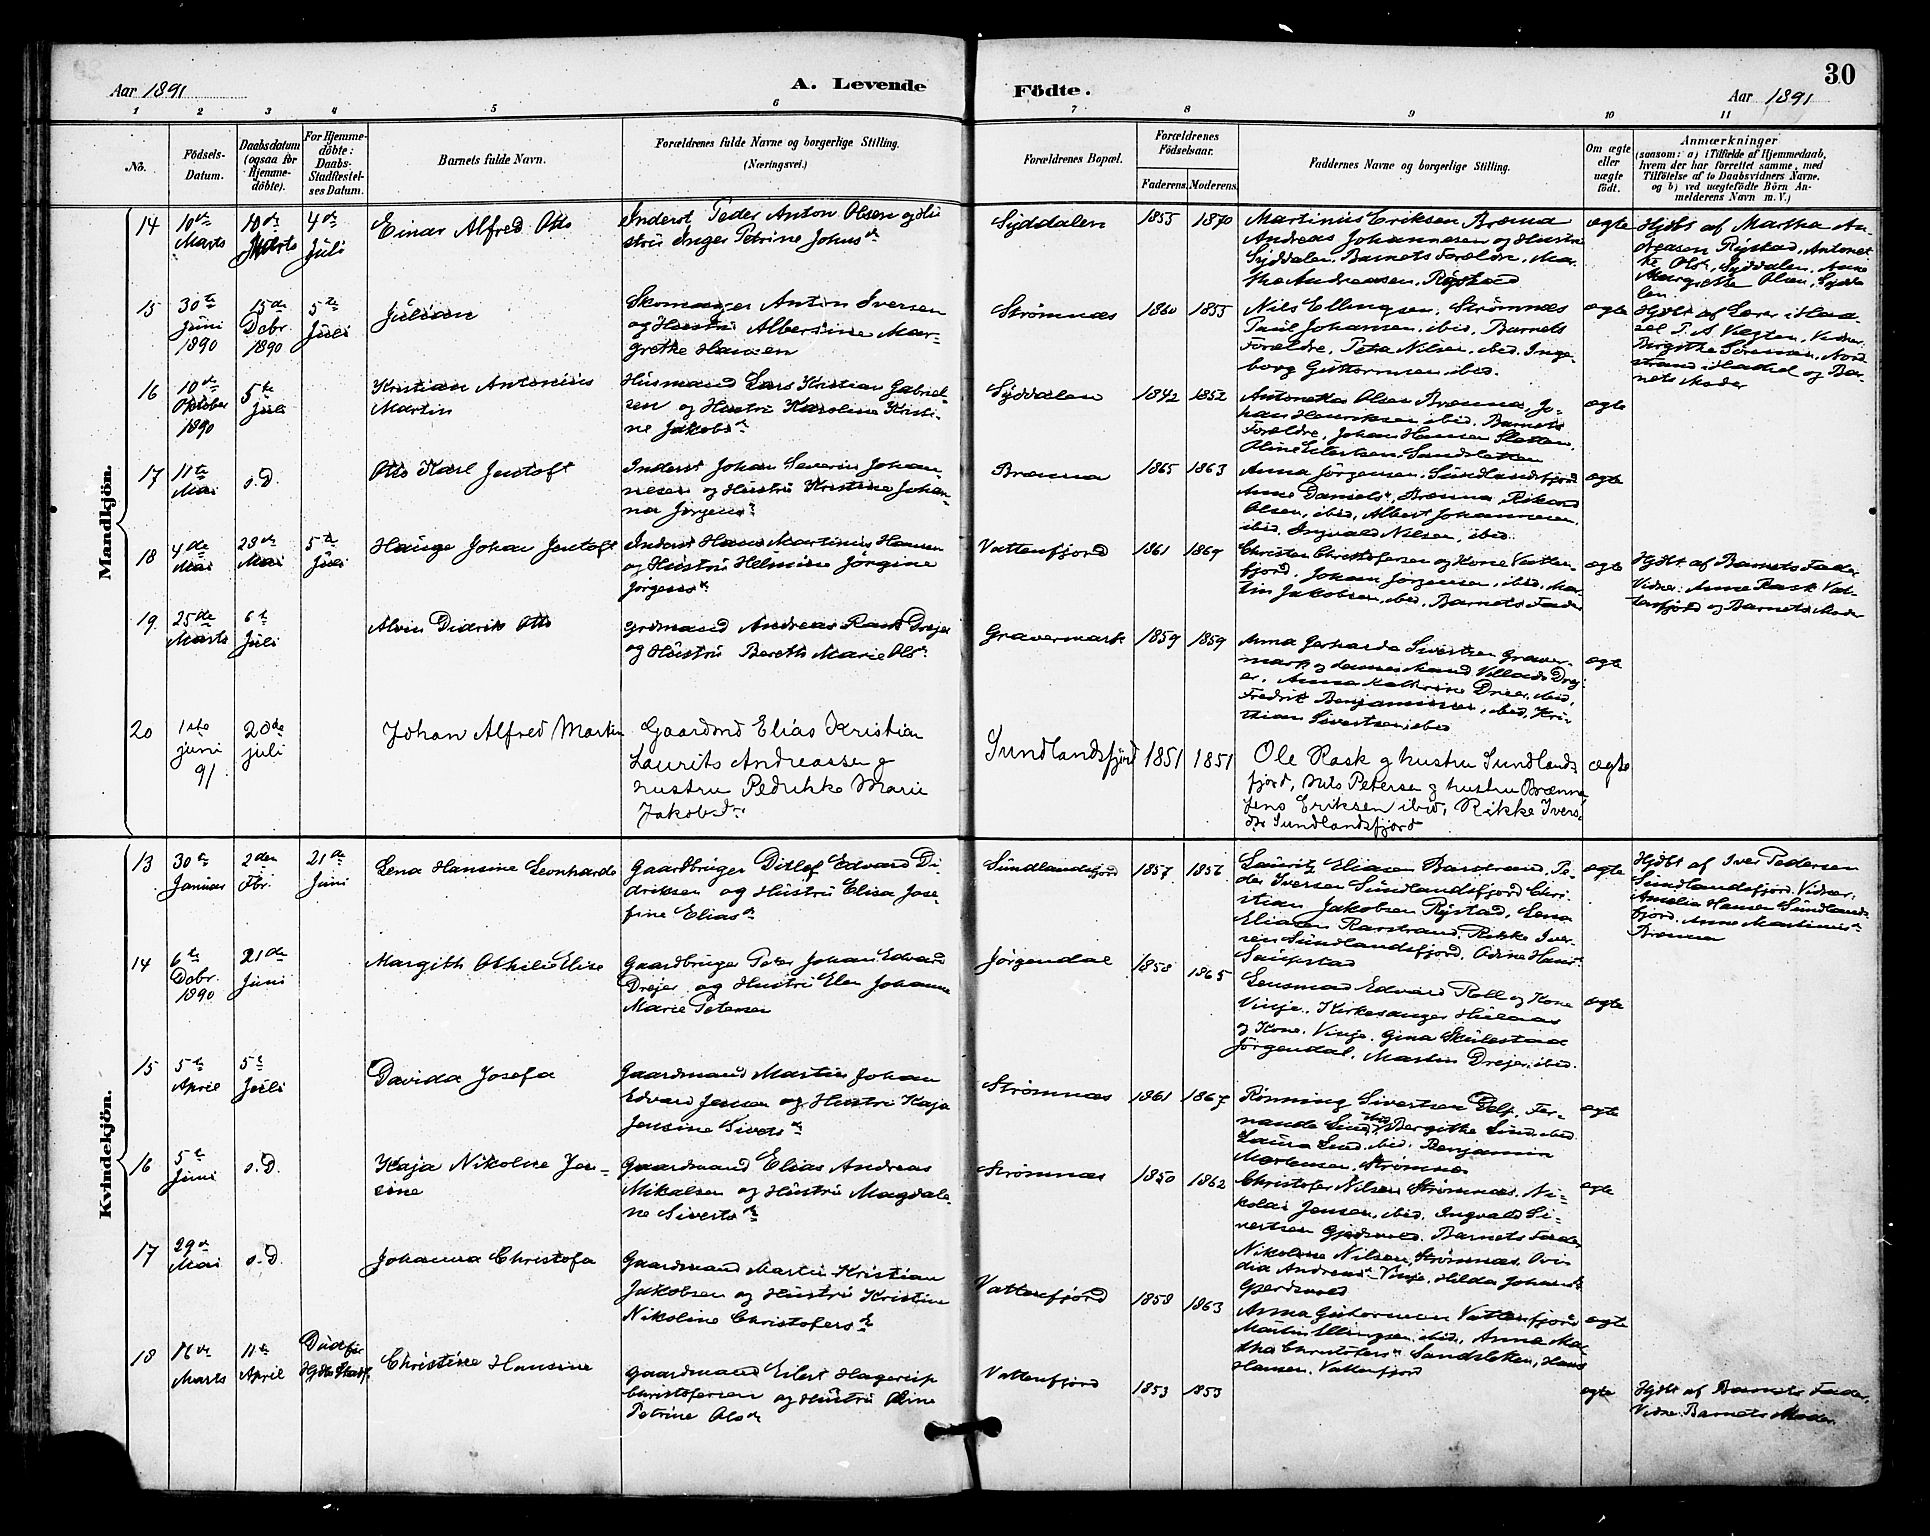 30
Aar 1891
A. Levende
Födte.
Aar 1891
1 2 3 4 5 6 7 8 9 10 11
No.
Födsels-
Datum.
Daabsdatum
(ogsaa for
Hjemme-
döbte).
For Hjemme-
döbte:
Daabs-
Stadfæstel-
ses Datum.
Barnets fulde Navn.
Forældrenes fulde Navne og borgerlige Stilling.
(Næringsvei.)
Forældrenes Bopæl.
Forældrenes
Födselsaar.
Faderens. Moderens.
Faddernes Navne og borgerlige Stilling.
Om ægte
eller
uægte
födt.
Anmærkninger
(saasom: a) i Tilfælde af Hjemmedaab,
hvem der har forrettet samme, med
Tilföielse af to Daabsvidners Navne.
og b) ved uægtefödte Börn An-
melderens Navn m. V.)
Mandkjön.
14
10de
Marts
18de
Marts
4de
Juli
Einar Alfred Otto
Inderst Peder Anton Olsen og Hu
stru Inger Petrine Johnsdr
Syddalen
1855 1870
Martinus Eriksen Brænna
Andreas Johannesen og Hustru
Syddalen, Barnets Forældre, Mar
tha Andreasen, Rystad
ægte
Hjdbt af Martha An-
dreasen Rystad, Antonet
te Olsdr, Syddalen, Anne
Margrethe Olsen, Sydda
len
15
30te
Juni
1890
15de
Dcbr.
1890
5te
Juli
Julian
Skomager Anton Iversen
og Hustru Albertine Mar-
grethe Hansen
Strømnæs
1860 1855
Nils Ellingsen, Strømnæs
Paul Johansen, ibid, Barnets
Forældre, Petra Nilsen, ibid, Inge-
borg Guttormsen ibid.
ægte
Hjdbt af Lærer i Had-
sel P. A. Vegten, Vidner
Birgithe Sørensen, Nord
strand i Hadsel og Bar-
nets Moder
16
10de
Oktober
1890
5te
Juli
Kristian Antonius
Martin
Husmand Lars Kristian Gabriel-
sen og Hustru Karoline Kristi-
ne Jakobsdr
Syddalen
1842 1852
Antonettes Olsen Brænna, Jo-
han Henriksen ibid, Barnets
Forældre, Johan Hansen Sletten,
Oline Eilertsen, Sandsletten
ægte
17
11te
Mai
s.D.
Otto Karl Jentoft
Inderst Johan Severin Johan-
nesen og Hustru Kristine Johan-
na Jørgensdr
Brænna
1865 1863
Anna Jørgensen, Sundlandsfjord
Anne Danielsdr, Brænna, Rikard
Olsen, ibid, Albert Johannesen,
ibid, Ingvald Nilsen, ibid.
ægte
18
4de
Mai
23de
Mai
5te
Juli
Hauge Johan Jentoft
Inderst Hans Martinus Hansen
og Hustru Helmine Jørgine
Jørgensdr
Vatterfjord
1861 1869
Christen Christofersen og Kone Vatter
fjord, Johan Jørgensen, ibid, Mar-
tin Jakobsen, ibid, Barnets Fader
ægte
Hjdbt af Barnets Fader
Vidner: Anne Rask Vat-
terfjord og Barnets Moder
19
25de
Marts
6te
Juli
Alvin Didrik Otto
Grdmand Andreas Rask Drejer
og Hustru Bereth Marie Olsdr
Gravermark
1859 1859
Anna Gerharda Sivertsen Graver-
mark og hendes Mand Villads Drej-
er, Anna Kathrine Dreier, ibid,
Fredrik Benjaminsen, ibid, Kri-
stian Sivertsen, ibid
ægte
20
1ste
juni
91
20de
juli
Johan Alfred Martin
Gaardmd Elias Kristian
Laurits Andreassen og
hustru Pedrikke Marie
Jakobsdr:
Sundlandsfjord
1851 1851
Ole Rask og hustru Sundlands
fjord, Nils Petersen og hustru Brænna
Jens Eriksen ibid, Rikke Ivers-
dtr Sundlandsfjord
ægte
Kvindekjön.
13
30te
Januar
2den
Fbr.
21de
Juni
Lena Hansine Leonharde
Gaardbruger Ditlef Edvard Di-
driksen og Hustru Elisa Jose-
fine Eliasdr
Sundlandsfjord
1857 1856
Lauritz Eliasen Barstrand, Pe-
der Iversen Sundlandsfjord Chri-
stian Jakobsen Rystad, Lena
Eliasen Barstrand, Rikke Iver-
sen Sundlandsfjord, Odine Hansdr
ægte
Hjdbt af Iver Pedersen
Sundlandsfjord. Vidner,
Amelia Hansen Sundlands-
fjord, Anne Martinusdr
Brænna
14
6te
Dcbr.
1890
21de
Juni
Margith Othilie Elise
Gaardbruger Peter Johan Edvard
Drejer og Hustru Elen Johanne
Marie Petersen
Jørgendal
1858 1865
Lensmand Edvard Roll og Kone
Vinje, Kirkesanger
og Kone, Vinje, Gina Skulestad
Jørgendal, Martin Drejer, ibid.
ægte
15
5te
April
5te
Juli
Davida Josefa
Gaardmand Martin Johan
Edvard Jensen og Hustru Kaja
Jensine Sivertsdr
Strømnæs
1861 1867
Rønning Sivertsen Delp, Fer-
nande Lind, ibid, Bergithe Lind, ibid.
Laura Lind, ibid, Benjamin
Mortensen, Strømnæs
ægte
16
5te
Juni
s.D.
Kaja Nikoline Jen-
sine
Gaardmand Elias Andreas
Mikalsen og Hustru Magdale-
ne Sivertsdr
Strømnæs
1850 1862
Christofer Nilsen Strømnæs, Ni-
kolai Jensen, ibid, Ingvald Si-
vertsen Gjerdsvold, Barnets Fader
Nikoline Nilsen, Strømnæs, Ovi
dia Andreasdr Vinje, Hilda Johansdr
Gjerdsvold
ægte
17
29de
Mai
s.D.
Johanna Christofa
Gaardmand Martin Kristian
Jakobsen og Hustru Kristine
Nikoline Christofersdr
Vatterfjord
1858 1863
Anna Guttormsen Vatterfjord
Martin Ellingsen, ibid, Anne Mar
tha Christofersdr Sandsletten, Hans
Hansen, Vatterfjord
ægte
18
16de
Marts
11te
April
Død før
Hjdbs Stadf.
Christine Hansine
Gaardmand Eilert Hagerup
Christofersen og Hustru Oline
Petrine Olsdr
Vatterfjord
1853 1855
ægte
Hjdbt af Barnets Fader,
Vidne: Barnets Moder